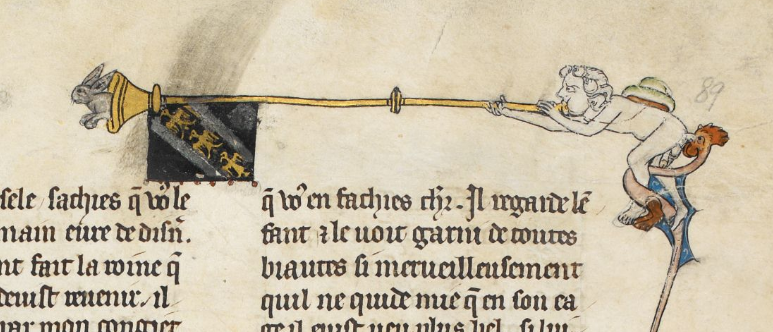 89
sele sachies q̄ vo⁹ le
main eure de disn̄.
nt fait la roine q̄
deust reuenir. il
par mon congiet
q̄ vo⁹ en fachies chr̄. Il regarde lē
fant ⁊ le uoit garni de toutes
biautes si merueilleusement
quil ne quide mie q̄ en son ea
ge il eust ueu plus bel. si lui